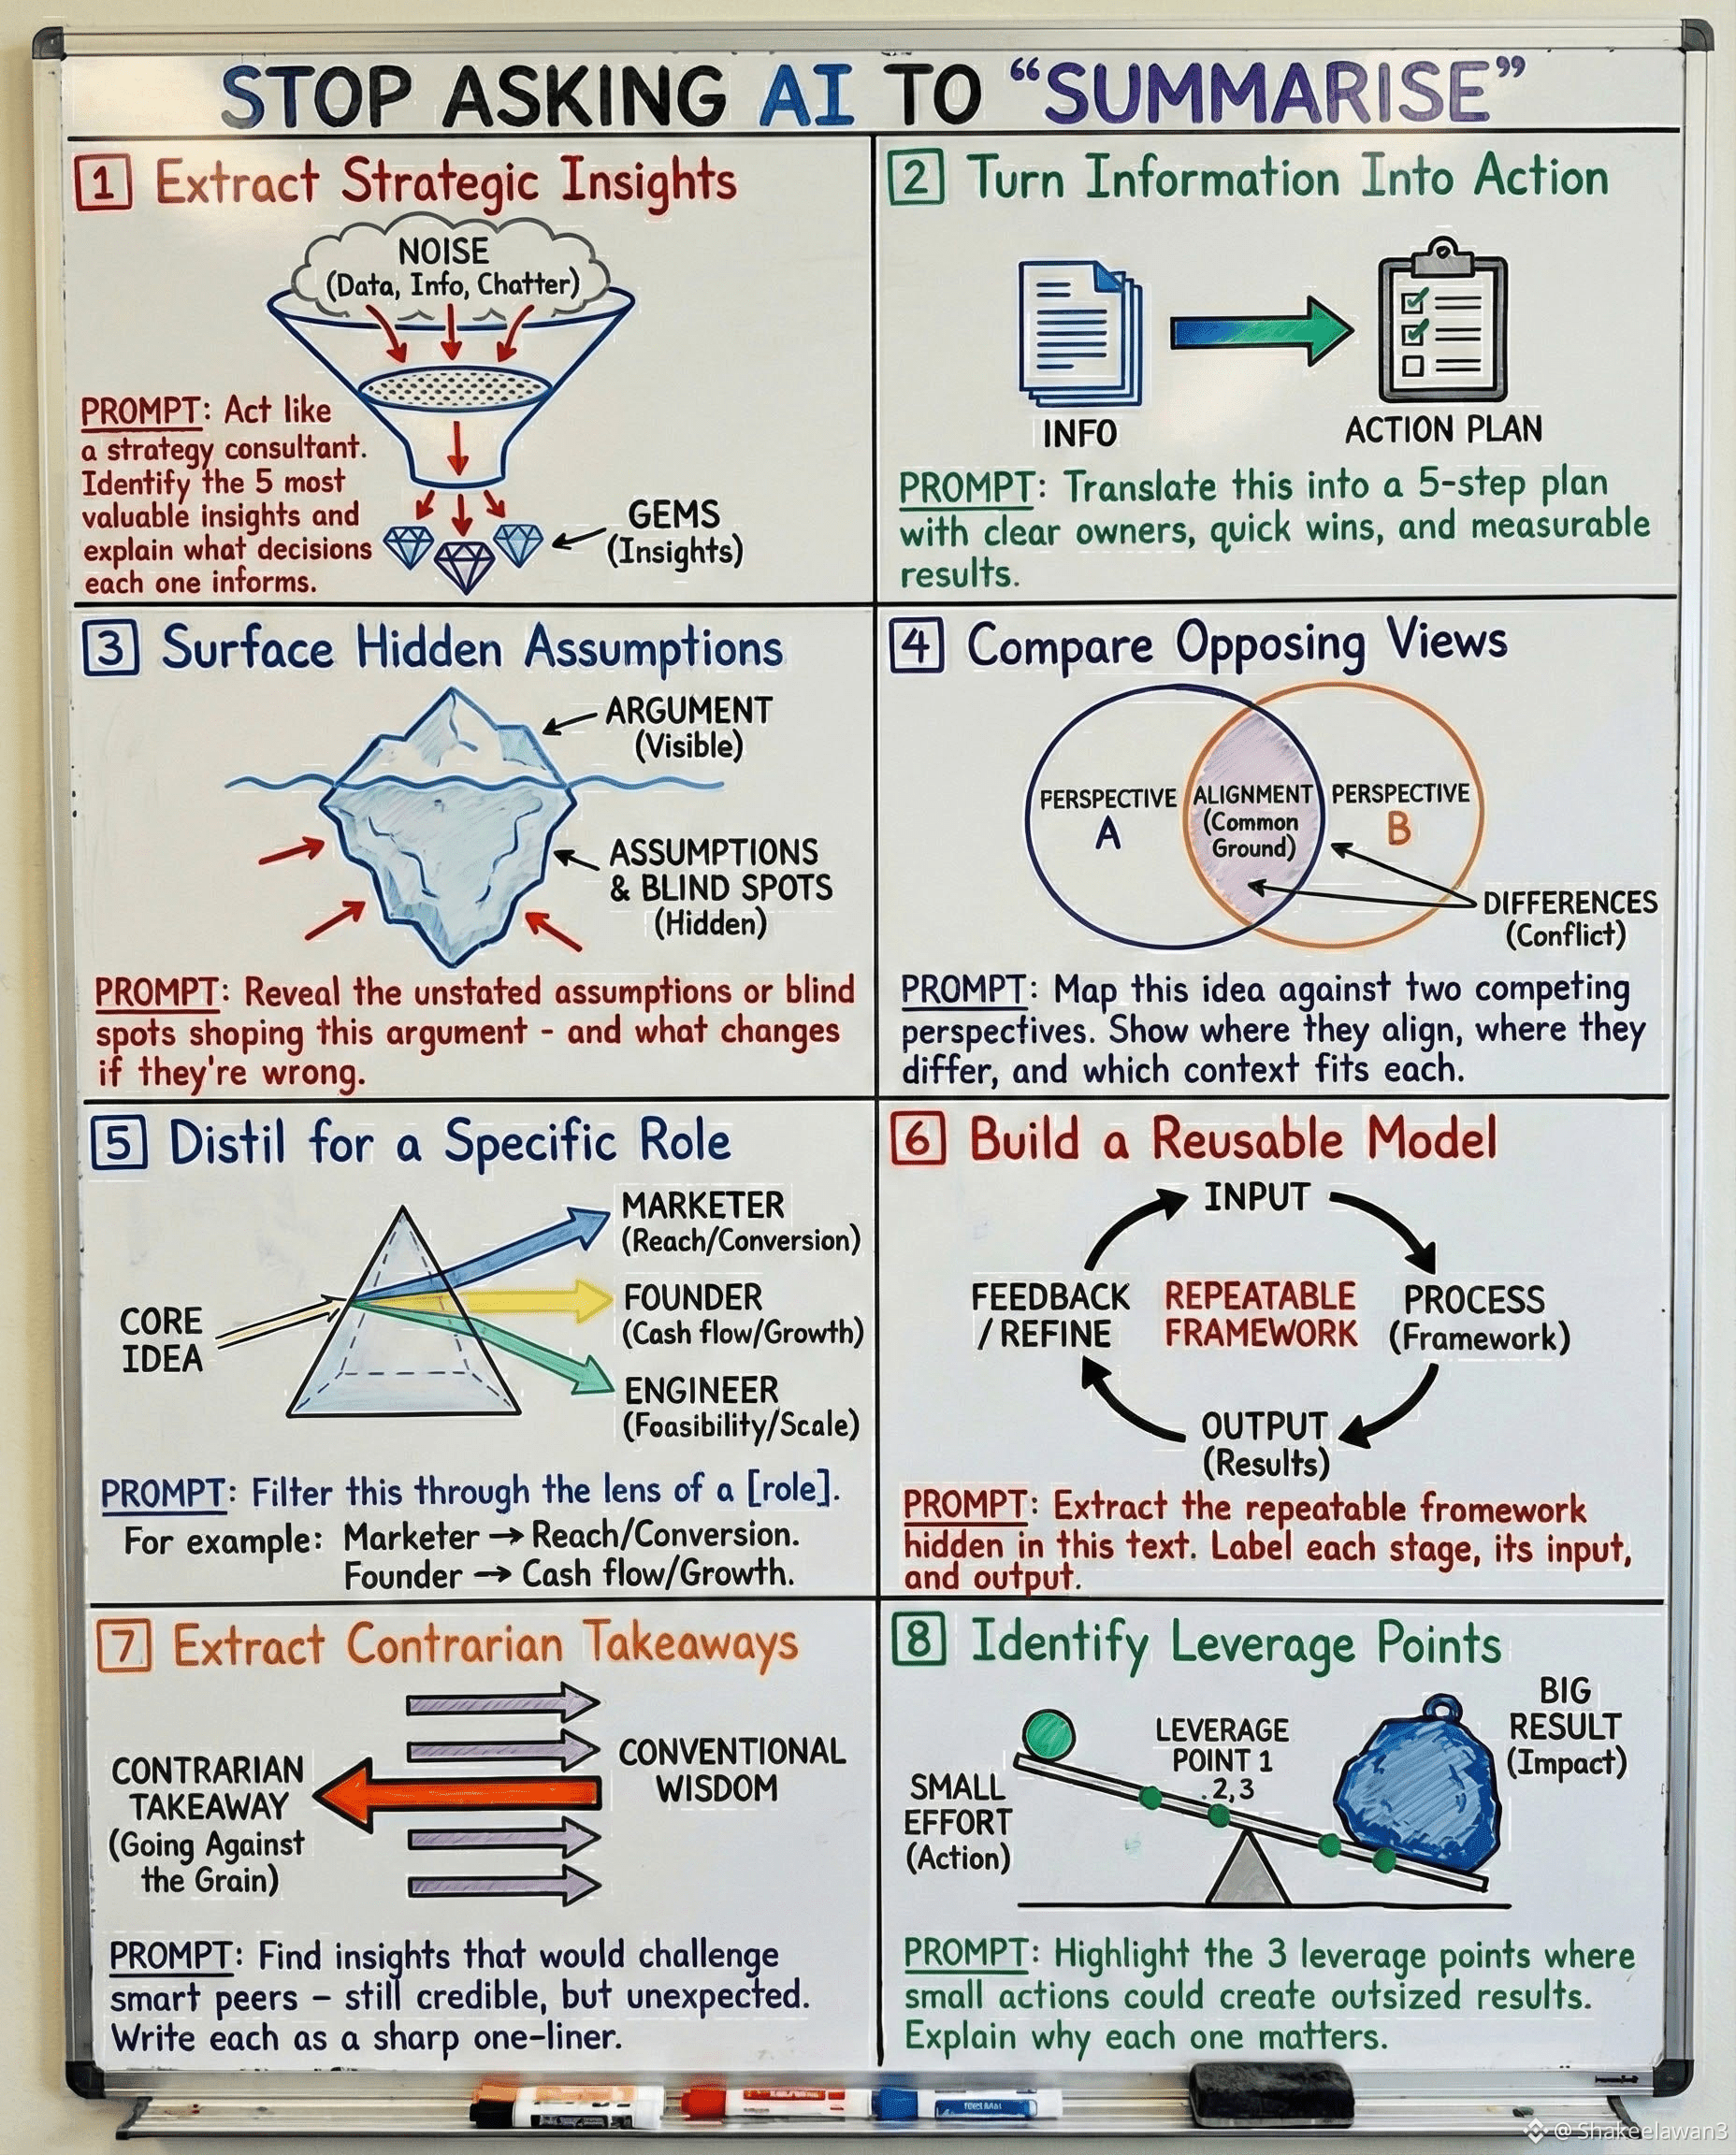 STOP ASKING AI TO “SUMMARISE”
1 Extract Strategic Insights
NOISE
(Data, Info, Chatter)
PROMPT: Act like
a strategy consultant.
Identify the 5 most
valuable insights and
explain what decisions
each one informs.
GEMS
(Insights)
2 Turn Information Into Action
INFO
ACTION PLAN
PROMPT: Translate this into a 5-step plan
with clear owners, quick wins, and measurable
results.
3 Surface Hidden Assumptions
ARGUMENT
(Visible)
ASSUMPTIONS
& BLIND SPOTS
(Hidden)
PROMPT: Reveal the unstated assumptions or blind
spots shoping this argument - and what changes
if they're wrong.
4 Compare Opposing Views
PERSPECTIVE
A
ALIGNMENT
(Common
Ground)
PERSPECTIVE
B
DIFFERENCES
(Conflict)
PROMPT: Map this idea against two competing
perspectives. Show where they align, where they
differ, and which context fits each.
5 Distil for a Specific Role
CORE
IDEA
MARKETER
(Reach/Conversion)
FOUNDER
(Cash flow/Growth)
ENGINEER
(Foasibility/Scale)
PROMPT: Filter this through the lens of a [role].
For example: Marketer → Reach/Conversion.
Founder → Cash flow/Growth.
6 Build a Reusable Model
INPUT
FEEDBACK
/ REFINE
REPEATABLE
FRAMEWORK
PROCESS
(Framework)
OUTPUT
(Results)
PROMPT: Extract the repeatable framework
hidden in this text. Label each stage, its input,
and output.
7 Extract Contrarian Takeaways
CONTRARIAN
TAKEAWAY
(Going Against
the Grain)
CONVENTIONAL
WISDOM
PROMPT: Find insights that would challenge
smart peers – still credible, but unexpected.
Write each as a sharp one-liner.
8 Identify Leverage Points
SMALL
EFFORT
(Action)
LEVERAGE
POINT 1
. 2,3
BIG
RESULT
(Impact)
PROMPT: Highlight the 3 leverage points where
small actions could create outsized results.
Explain why each one matters.
@ Shakeelawan3